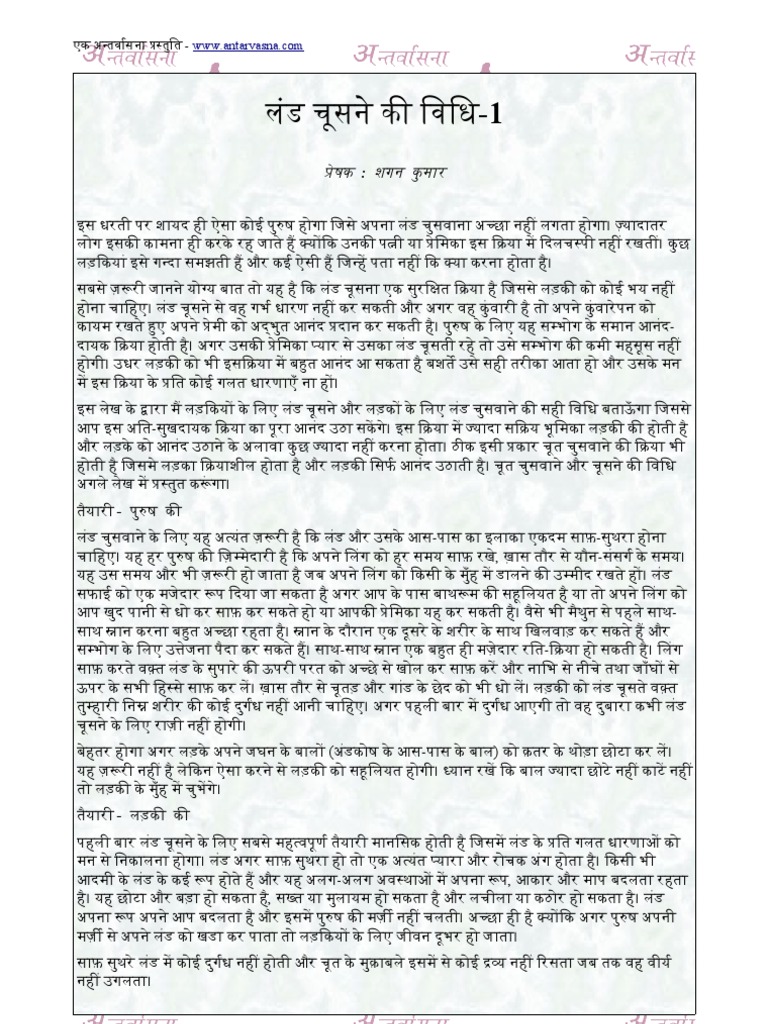 एक अन्तर्वासना प्रस्तुति - www.antarvasna.com
अन्तर्वासना अन्तर्वासना अन्तर्वास
लंड चूसने की विधि-1
प्रेषक : शगन कुमार
इस धरती पर शायद ही ऐसा कोई पुरुष होगा जिसे अपना लंड चुसवाना अच्छा नहीं लगता होगा। ज़्यादातर
लोग इसकी कामना ही करके रह जाते हैं क्योंकि उनकी पत्नी या प्रेमिका इस क्रिया में दिलचस्पी नहीं रखतीं। कुछ
लड़कियां इसे गन्दा समझती हैं और कई ऐसी हैं जिन्हें पता नहीं कि क्या करना होता है।
सबसे ज़रूरी जानने योग्य बात तो यह है कि लंड चूसना एक सुरक्षित क्रिया है जिससे लड़की को कोई भय नहीं
होना चाहिए। लंड चूसने से वह गर्भ धारण नहीं कर सकती और अगर वह कुंवारी है तो अपने कुंवारेपन को
कायम रखते हुए अपने प्रेमी को अद्भुत आनंद प्रदान कर सकती है। पुरुष के लिए यह सम्भोग के समान आनंद-
दायक क्रिया होती है। अगर उसकी प्रेमिका प्यार से उसका लंड चूसती रहे तो उसे सम्भोग की कमी महसूस नहीं
होगी। उधर लड़की को भी इसक्रिया में बहुत आनंद आ सकता है बशर्ते उसे सही तरीका आता हो और उसके मन
में इस क्रिया के प्रति कोई गलत धारणाएँ ना हों।
इस लेख के द्वारा मैं लड़कियों के लिए लंड चूसने और लड़कों के लिए लंड चुसवाने की सही विधि बताऊँगा जिससे
आप इस अति-सुखदायक क्रिया का पूरा आनंद उठा सकेंगे। इस क्रिया में ज्यादा सक्रिय भूमिका लड़की की होती है
और लड़के को आनंद उठाने के अलावा कुछ ज्यादा नहीं करना होता। ठीक इसी प्रकार चूत चुसवाने की क्रिया भी
होती है जिसमे लड़का क्रियाशील होता है और लड़की सिर्फ आनंद उठाती है। चूत चुसवाने और चूसने की विधि
अगले लेख में प्रस्तुत करूंगा।
तैयारी - पुरुष की
लंड चुसवाने के लिए यह अत्यंत ज़रूरी है कि लंड और उसके आस-पास का इलाका एकदम साफ़-सुथरा होना
चाहिए। यह हर पुरुष की ज़िम्मेदारी है कि अपने लिंग को हर समय साफ़ रखे, ख़ास तौर से यौन-संसर्ग के समय।
यह उस समय और भी ज़रूरी हो जाता है जब अपने लिंग को किसी के मुँह में डालने की उम्मीद रखते हों। लंड
सफाई को एक मजेदार रूप दिया जा सकता है अगर आप के पास बाथरूम की सहूलियत है या तो अपने लिंग को
आप खुद पानी से धो कर साफ़ कर सकते हो या आपकी प्रेमिका यह कर सकती है। वैसे भी मैथुन से पहले साथ-
साथ स्नान करना बहुत अच्छा रहता है। स्नान के दौरान एक दूसरे के शरीर के साथ खिलवाड़ कर सकते हैं और
सम्भोग के लिए उत्तेजना पैदा कर सकते हैं। साथ-साथ स्नान एक बहुत ही मज़ेदार रति-क्रिया हो सकती है। लिंग
साफ़ करते वक़्त लंड के सुपारे की ऊपरी परत को अच्छे से खोल कर साफ़ करें और नाभि से नीचे तथा जाँघों से
ऊपर के सभी हिस्से साफ़ कर लें। ख़ास तौर से चूतड़ और गांड के छेद को भी धो लें। लड़की को लंड चूसते वक़्त
तुम्हारी निम्न शरीर की कोई दुर्गंध नहीं आनी चाहिए। अगर पहली बार में दुर्गंध आएगी तो वह दुबारा कभी लंड
चूसने के लिए राज़ी नहीं होगी।
बेहतर होगा अगर लड़के अपने जघन के बालों (अंडकोष के आस-पास के बाल) को क़तर के थोड़ा छोटा कर लें।
यह ज़रूरी नहीं है लेकिन ऐसा करने से लड़की को सहूलियत होगी। ध्यान रखें कि बाल ज्यादा छोटे नहीं काटें नहीं
तो लड़की के मुँह में चुभेंगे।
तैयारी - लड़की की
पहली बार लंड चूसने के लिए सबसे महत्वपूर्ण तैयारी मानसिक होती है जिसमें लंड के प्रति गलत धारणाओं को
मन से निकालना होगा। लंड अगर साफ़ सुथरा हो तो एक अत्यंत प्यारा और रोचक अंग होता है। किसी भी
आदमी के लंड के कई रूप होते हैं और यह अलग-अलग अवस्थाओं में अपना रूप, आकार और माप बदलता रहता
है। यह छोटा और बड़ा हो सकता है, सख्त या मुलायम हो सकता है और लचीला या कठोर हो सकता है। लंड
अपना रूप अपने आप बदलता है और इसमें पुरुष की मर्ज़ी नहीं चलती। अच्छा ही है क्योंकि अगर पुरुष अपनी
मर्ज़ी से अपने लंड को खडा कर पाता तो लड़कियों के लिए जीवन दूभर हो जाता।
साफ़ सुथरे लंड में कोई दुर्गंध नहीं होती और चूत के मुक़ाबले इसमें से कोई द्रव्य नहीं रिसता जब तक वह वीर्य
नहीं उगलता।